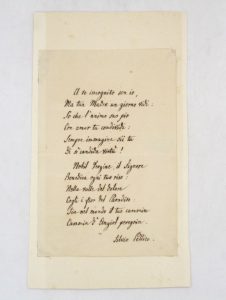 A te incognito son io,
Ma tua Madre un giorno vidi:
So che l'animo suo pio
Con amor tu condividi:
Sempre immagine sii tu
Di sì candida virtù!
Nobil Vergine, il Signore
Benedica ogni tuo riso:
Nella valle del dolore
Cogli i fior del Paradiso
Sia nel mondo il tuo cammin
Cammin d'Angiol peregrin.
Silvio Pellico.